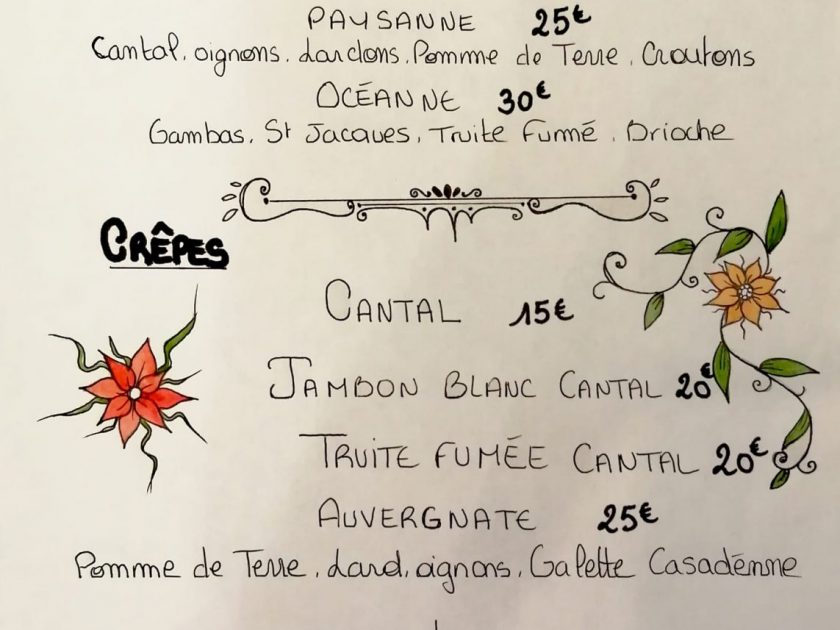 PAYSANNE 25€
Cantal, oignons, Lardons, Pomme de Terre, Croutons
OCÉANNE 30€
Gambas, St Jacques, Truite Fumé, Brioche
CRÊPES
CANTAL 15€
JAMBON BLANC CANTAL 20€
TRUITE FUMÉE CANTAL 20€
AUVERGNATE 25€
Pomme de Terre, Lard, oignons, Galette Casadéenne